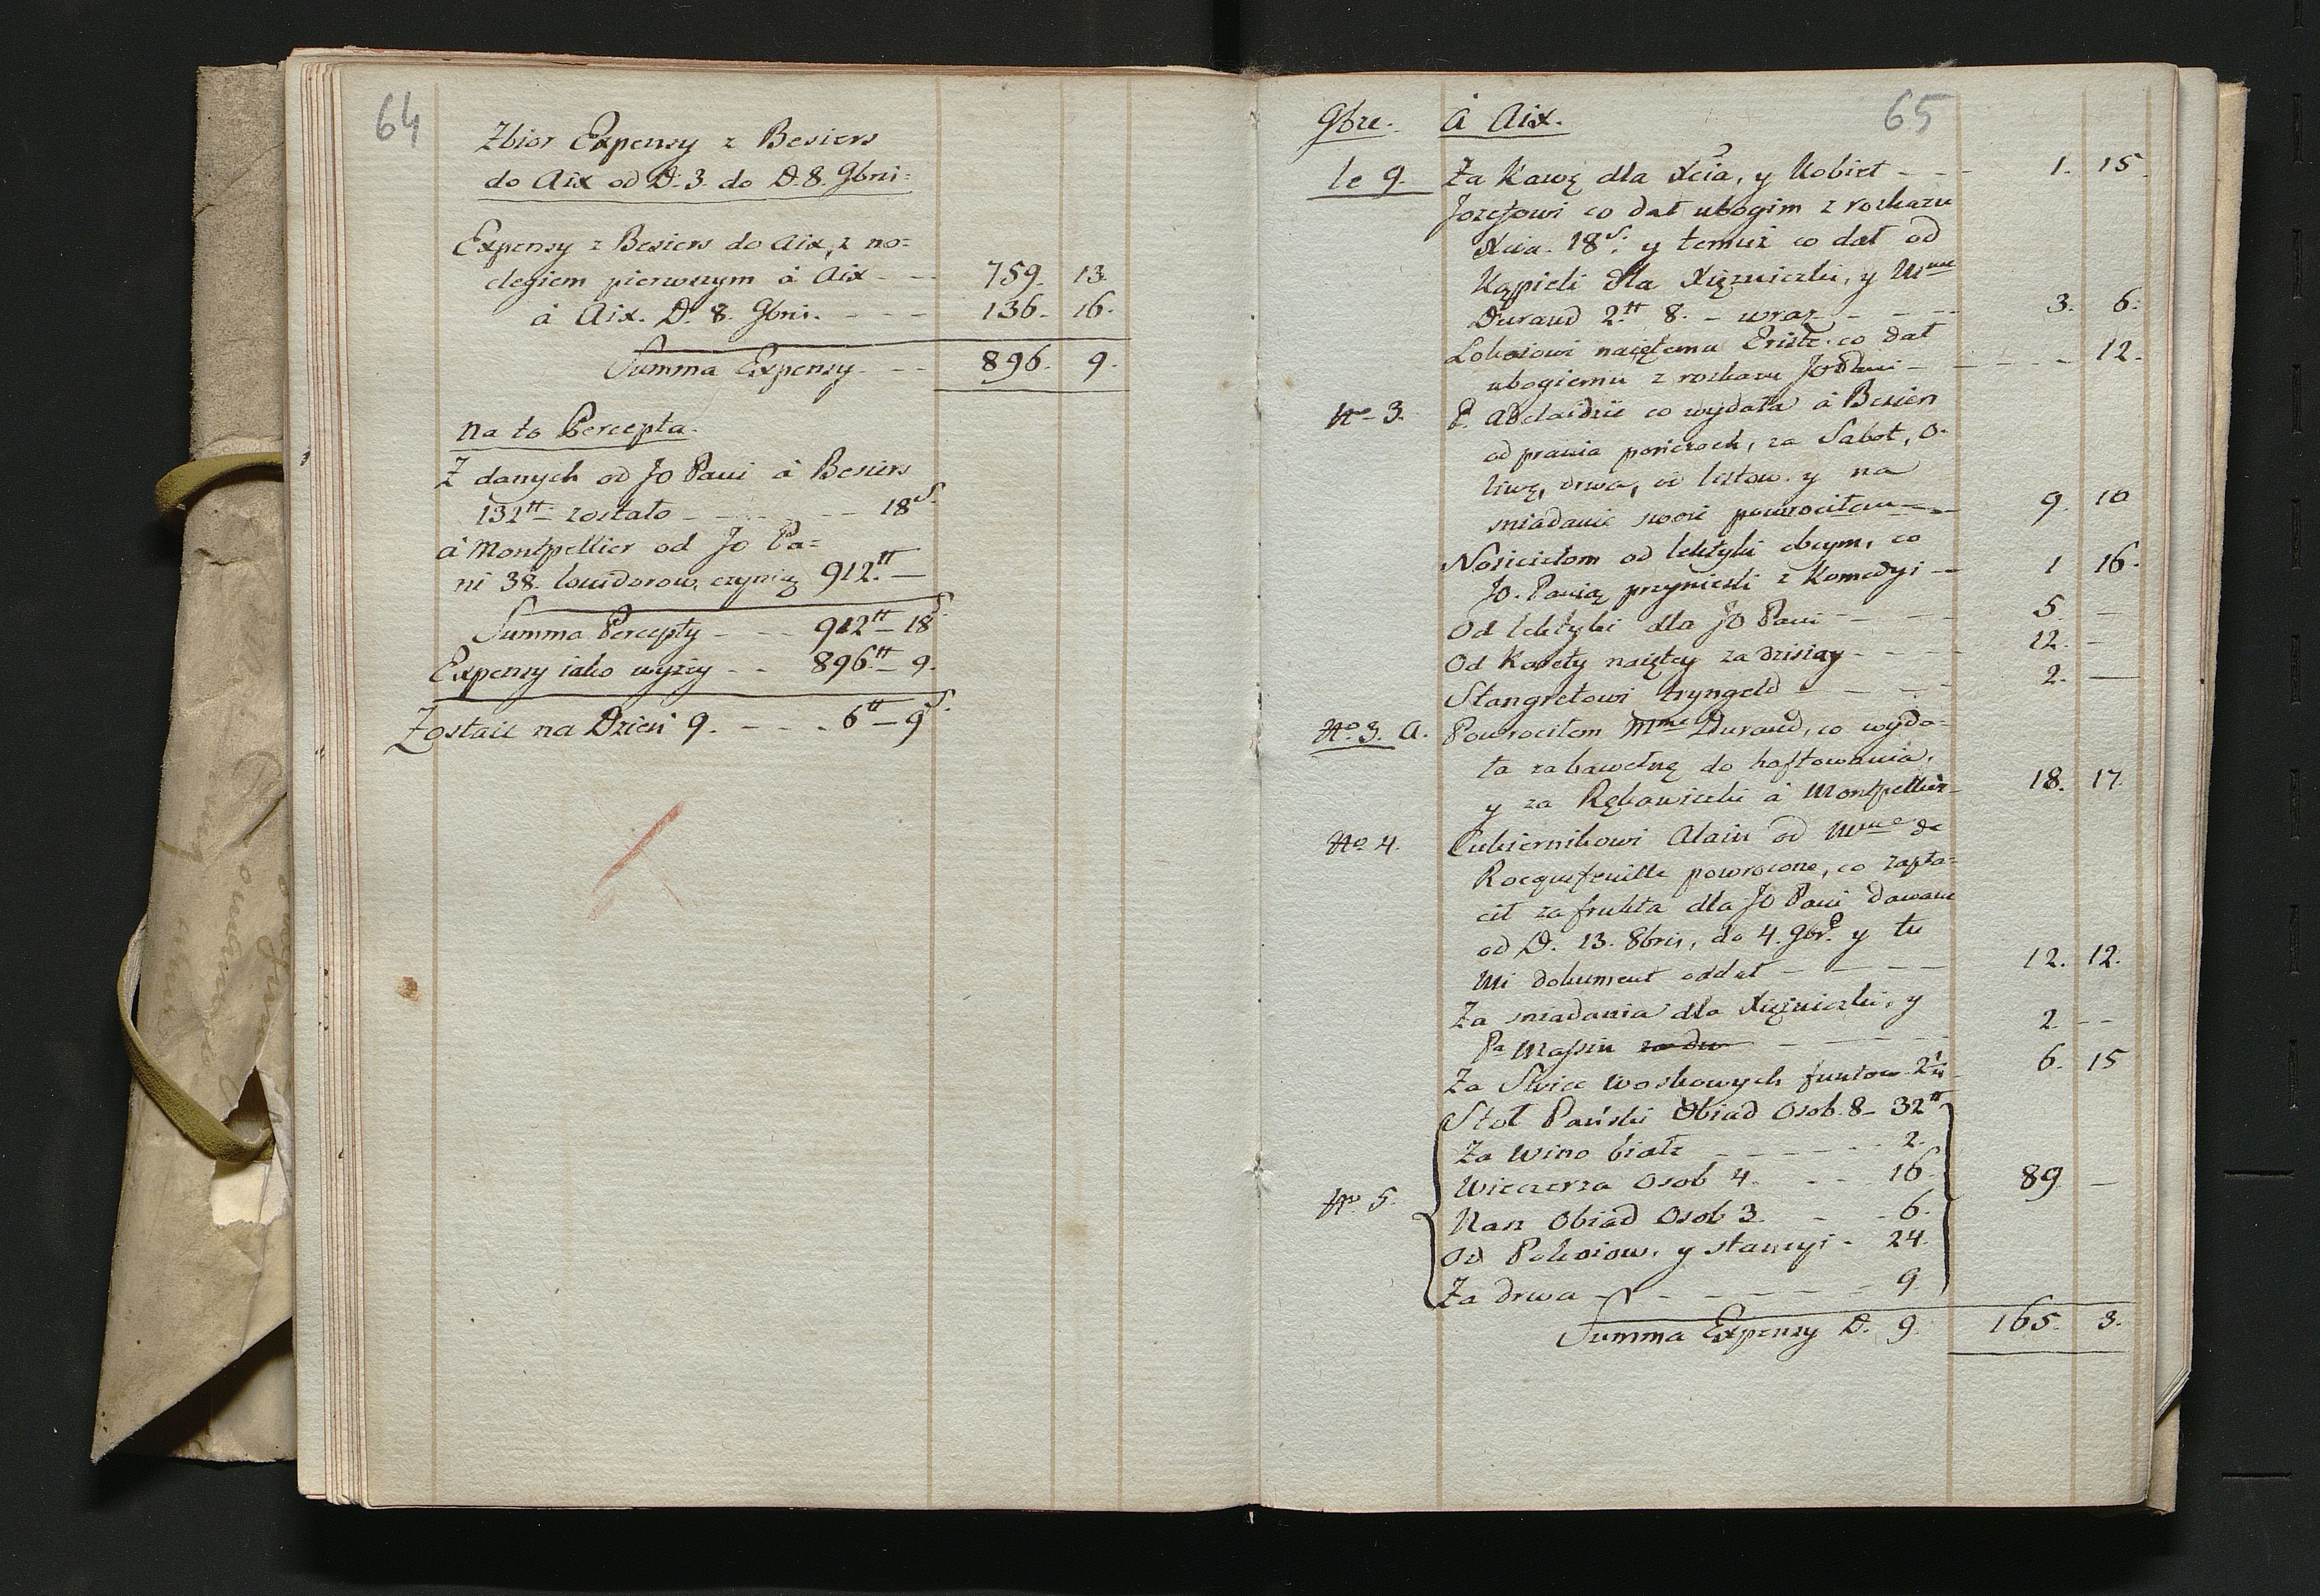 64
Zbior Expensy z Besiers
do Aix od D. 3. do D. 8. 9bris.
Expensy z Besiers do Aix, z no=
clegiem pierwszym á Aix - - 759. 13.
á Aix. D. 8. 9bris. - - - 136. 16.
Summa Expensy - - 896. 9.
Na to Percepta.
Z danych od JO Pani á Besiers
132 tt zostało - - - - 18 s.
á Montpellier od JO Pa=
ni 38. louidorow, czynią 912. tt —
Summa Percepty - - - 912 tt — 18 s.
Expensy iako wyżey - - 896 tt — 9.
Zostaie na Dzień 9. - - - 6 tt — 9 s.
65
9bre. á Aix.
le 9. Za Kawę dla Xcia, y Kobiet - - 1. 15.
Jozefowi co dał ubogim z roskazu
Xcia. 18 s. y temuż co dał od
Kąpieli dla Xiężniczki, y Mme
Durand 2. tt 8. - wraz - - - 3. 6.
Lokaiowi naiętemu co dał
ubogiemu z roskazu JO Pani - - - - 12.
No. 3. P. Adelaidzie co wydała á Besien
od prania poniczoch, za Sabot, o-
liwę, drwa, od listow. y na
sniadanie swoie powrociłem - - 9. 10
Nosicielom od lektyki obcym, co
JO. Panią przyniesli z Komedyi - 1 16.
Od lektyki dla JO Pani - - - 5. —
Od Karety naiętey za dzisiay - - - 12. —
Stangretowi tryngeld - - - - 2. —
No. 3. A. Powrociłem Mme Durand, co wyda=
ła za bawełnę do haftowania,
y za Rękawiczki á Montpellier - 18. 17.
No 4. Cukiernikowi Alain od Mme de
Rocquefeuille powrocone, co zapła=
cił za frukta dla JO Pani dawane
od D. 13. 8bris, do 4. 9bre. y tu
Mi dokument oddał - - - - 12. 12.
Za sniadania dla Xiężniczki, y
Pa Massin - - - - 2. - -
Za Swiec woskowych funtow 2 1/4 - 6. 15
Stoł Pański Obiad Osob. 8 - 32 tt
Za Wino białe - - - - - 2.
Wieczerza Osob 4. - - 16.
No. 5. Nasz Obiad Osob 3. - - 6. 89 —
Od Pokoiow. y stancyi - 24.
Za drwa - - - - - - 9
Summa Expensy D. 9. 165. 3.